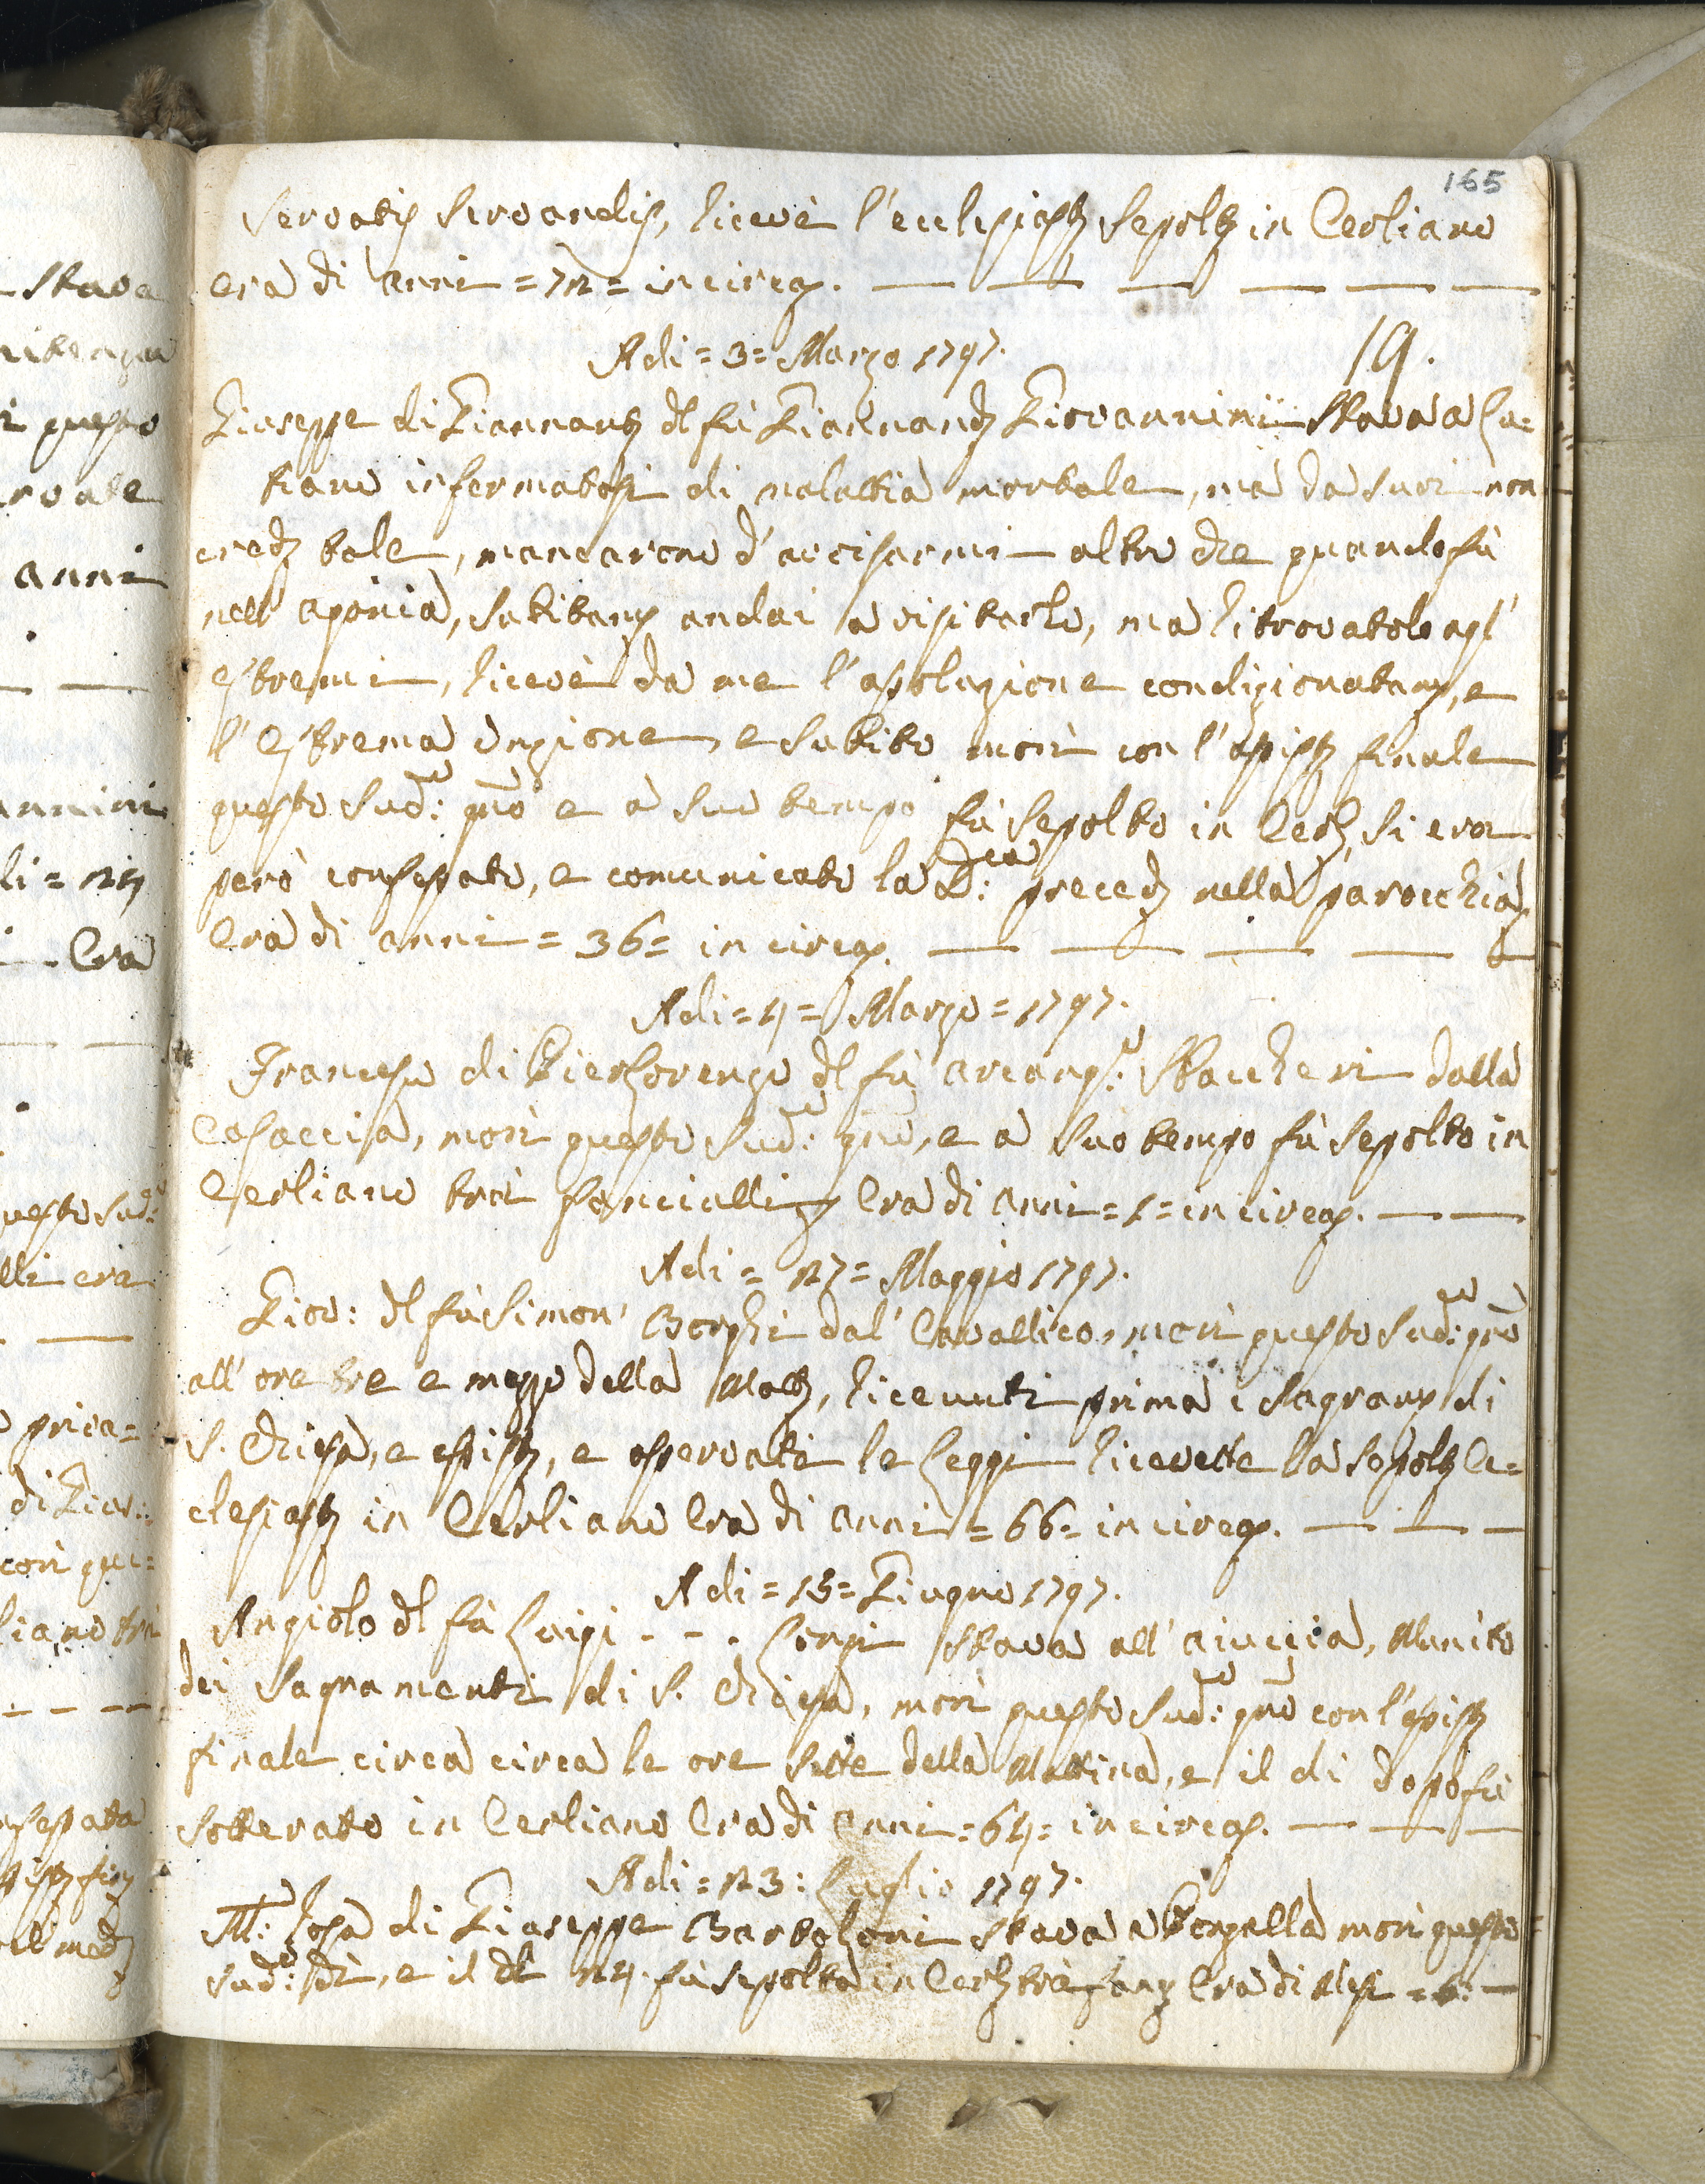 165
Servatis Servandis, ricevè l'eclesiast: Sepolt: in Cerliano
era di anni = 72 = in circa. — — — — — —
Adi = 3 = Marzo 1797. 19.
Giuseppe di Giannant: dl fù Gio: Giovannini Stava a Cu=
tiano infermatosi di malattia mortale, mà da suoi non
cred: tale, mancarono d'avvisarmi altro che quando fù
nell'agonia, subitam: andai a visitarlo, ma ritrovatolo agl'
estremi, ricevè da me l'assoluzione condizionatam:, e
l'Estrema Unzione, e subito morì con l'assist: finale
questo Sud:º gnõ e a suo tempo fù sepolto in Cerl: si era
però confessato, e comunicato la D:ca preced: nella parocchia
Era di anni = 36 = in circa. — — — — —
Adi = 4 = Marzo = 1797.
Francesco di Pier Lorenzo dl fù Arcang:º Stacheri dalla
Casaccia, morì questo Sud:º gnõ, e a suo tempo fù sepolto in
Cerliano trà fanciulli, Era di anni = 1 = in circa. — —
Adi = 27 = Maggio 1797.
Gio: dl fù Simon' Borghi dal' Cavallico, morì questo Sud:º gnõ
all'ore tre e mezzo della Matt:, ricevuti prima i Sagram: di
S. Chiesa, e assist:, e osservate le Leggi ricevette la sepolt: Ec=
clesiast: in Cerliano Era di anni = 66 = in circa. — — —
Adi = 13 = Giugno 1797.
Angiolo dl fù Luigi - - . Longi Stava all'aiuccia, Munito
dei Sagramenti di S. Chiesa, morì questo Sud:º gnõ con l'assist:
finale circa circa le ore Sette della Mattina, e il di dopo fù
sotterato in Cerliano Era di anni = 64 = in circa. — — —
Adi = 23 : Luglio 1797.
M: Rosa di Giuseppe Bartoloni Stava a morì questo
sud:º dì, e il dì 24. fù sepolta in Cerl: trà fanc: Era di Mesi = 6: —